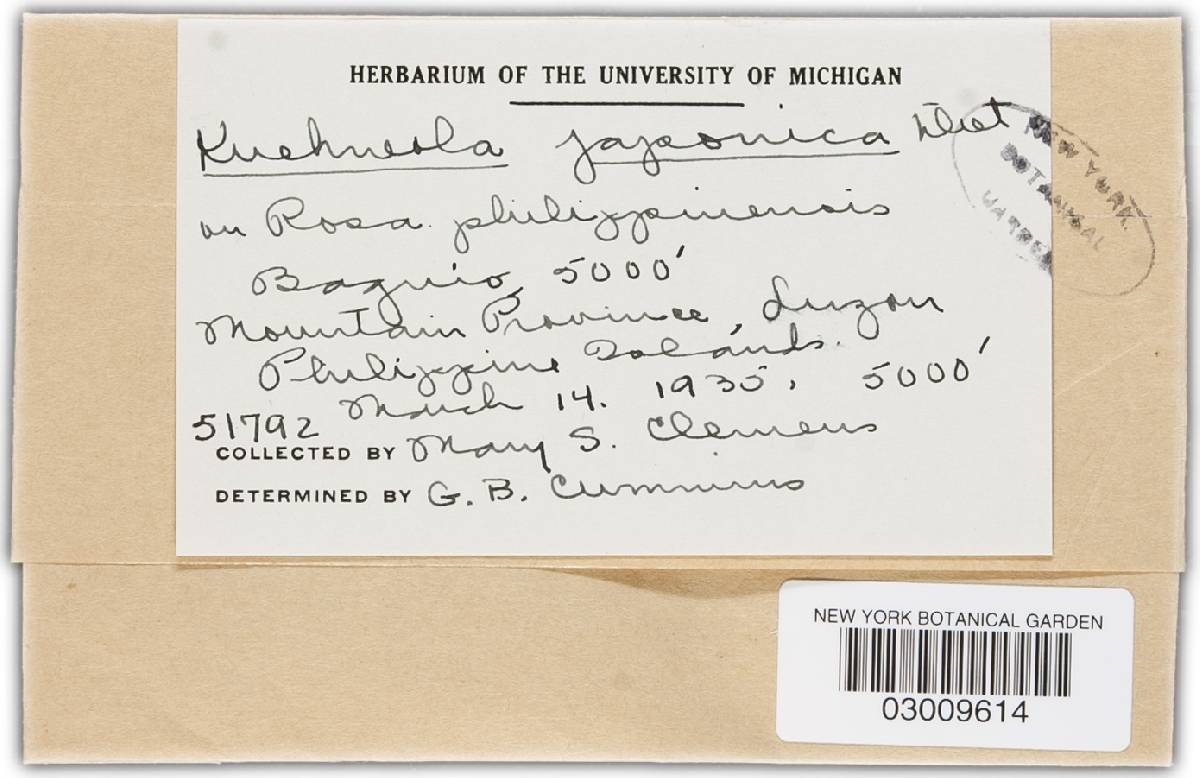 HERBARIUM OF THE UNIVERSITY OF MICHIGAN
Kuehneola japonica Diet
NEW YORK
BOTANICAL
GARDEN
on Rosa philippinensis
Baguio, 5000'
Mountain Province, Luzon
Philippine Islands.
March 14. 1935, 5000'
51792
COLLECTED BY Mary S. Clemens
DETERMINED BY G. B. Cummins
NEW YORK BOTANICAL GARDEN
03009614